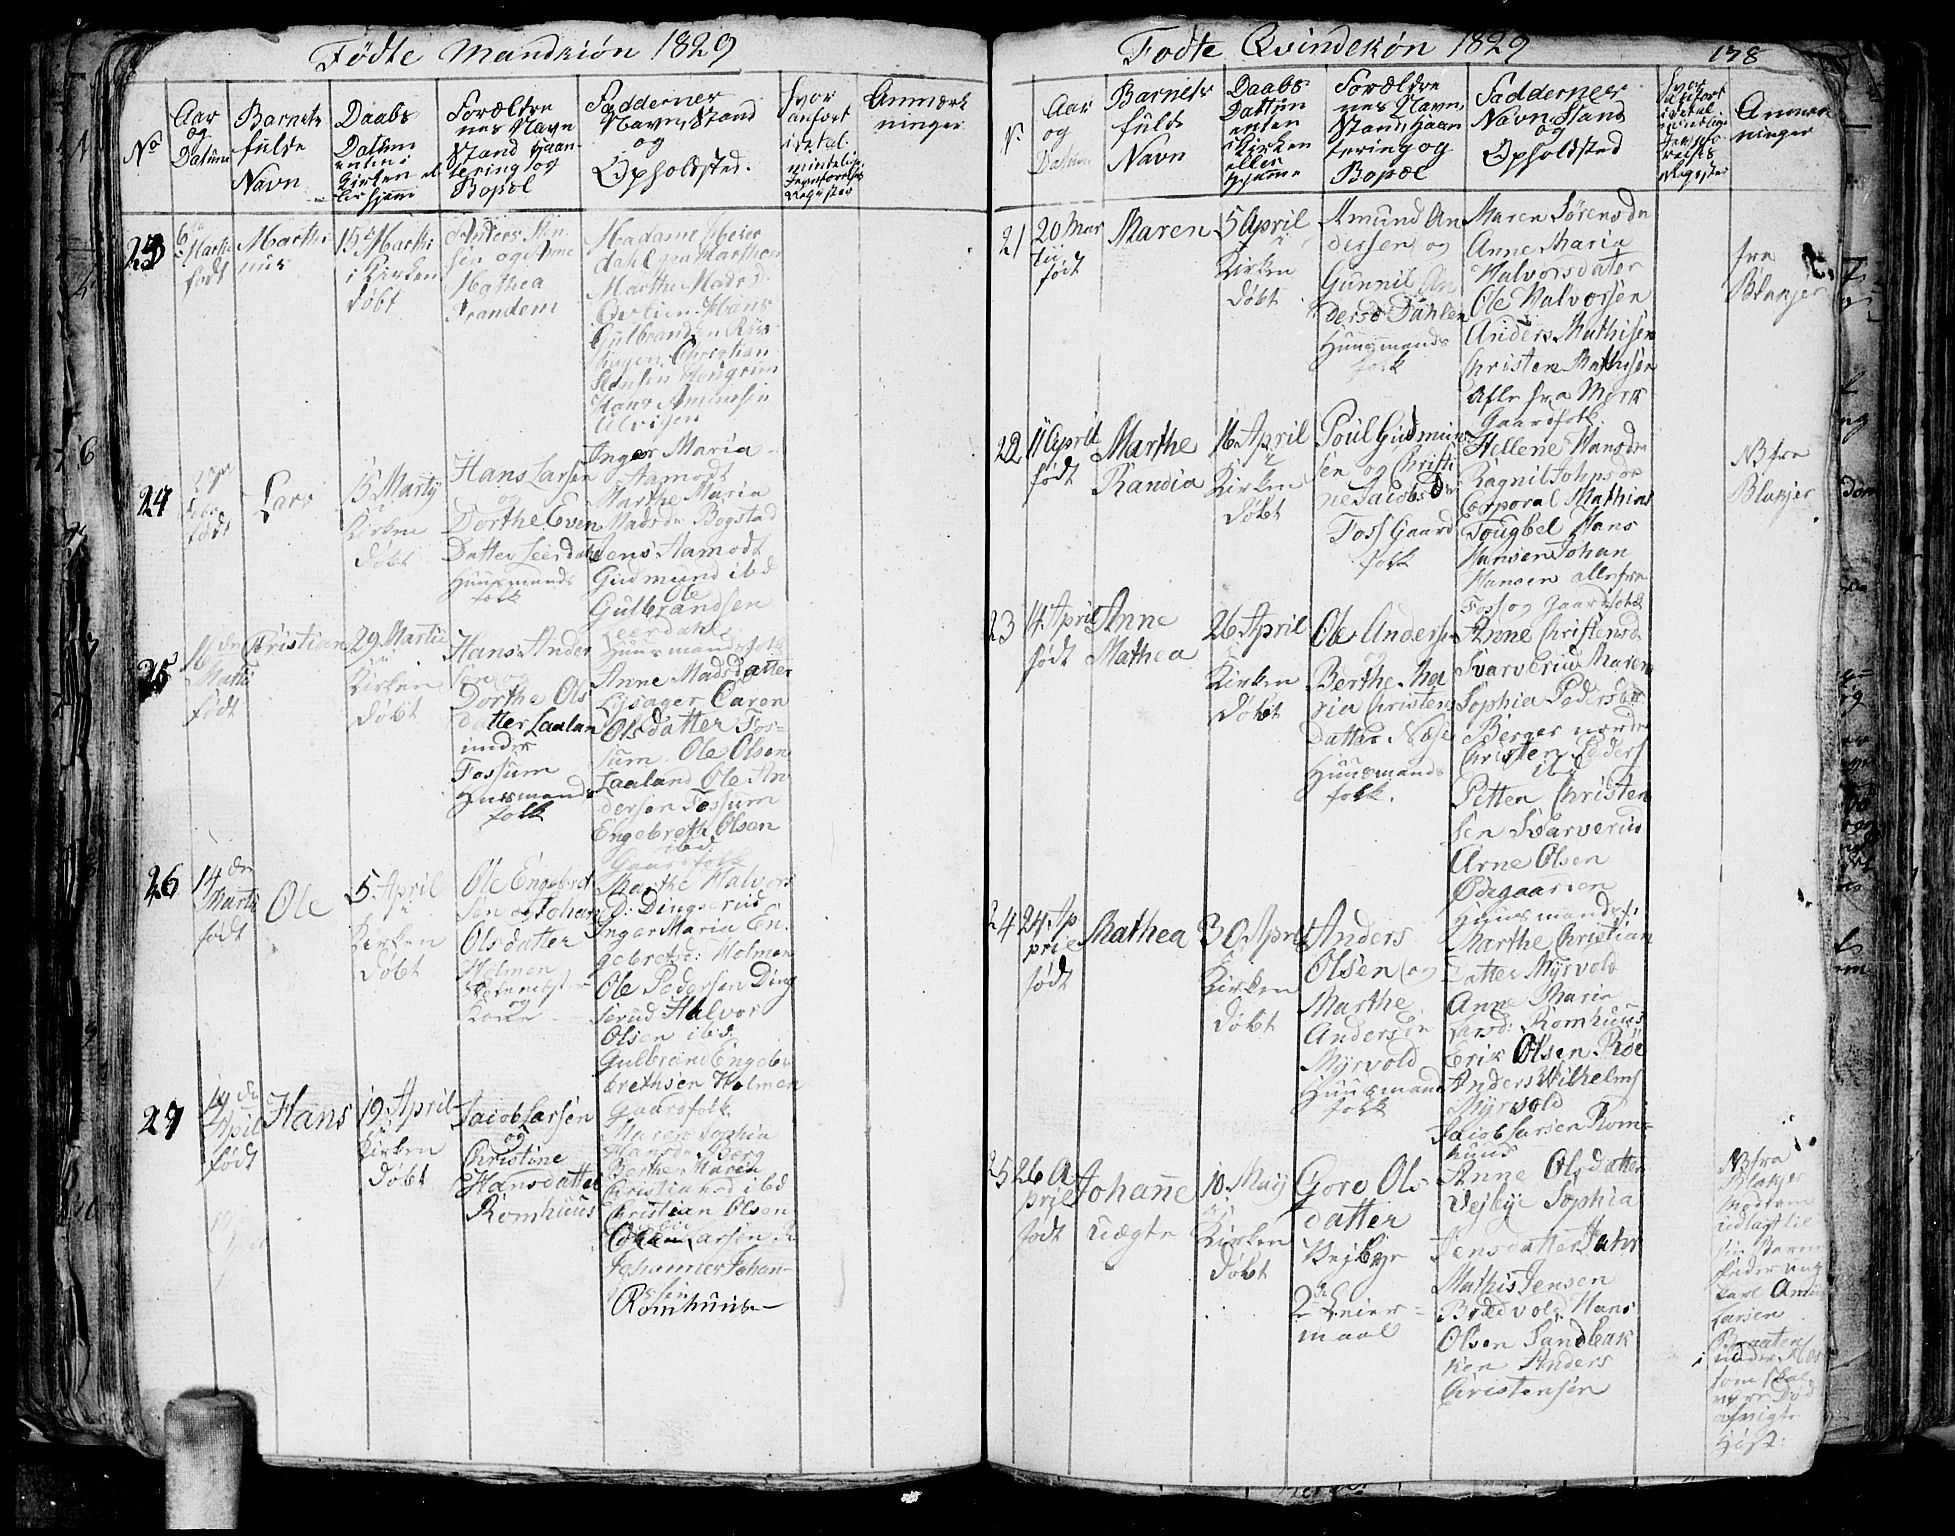 Fødte Mandkiön 1829
No
Aar
og
Datum
Barnets
fulde
Navn
Daabs
Datum
enten i
Kirken el
ler hjeme
Forældre
nes Navn
Stand Haan
tering og
Bopæl
Faddernes
Navn, Stand
og
Opholdsted.
Hvor
anført
i det al
mindelig
Jevnførelses
Register
Anmærk
ninger
23
6
Martii
født
Marthi
nus
15 Marti
i Kirken
døbt
Anders
sen og Anne
Mathea
Trandem
Madame Heier
dahl
Marthe Madsd
Hans
Gulbrandsen
Christian
Hans Amundsen
Ulvigen
24
født
Lars
15 Martij
i
Kirken
døbt
Hans Larsen
og
Dorthe Even
Datter Leerdahl
Huusmands
folk
Inger Maria
Aamodt
Marthe Maria
Madsdr Bogstad
Jens Aamodt
Gudmund ibd
Ole
Gulbrandsen
Leerdahl
Huusmandsfolk
25
Martii
født
Christian
29 Martii
i
Kirken
døbt
Hans Ander
sen og
Dorthe Ols
datter Laalan
under
Fossum
Huusmands
folk
Anne Madsdatter
Lysager Caren
Olsdatter Fos-
sum. Ole Olsen
Laaland Ole An
dersen Fossum
Engebreth Olsen
ibd:
Gaardfolk
26
14 de
Martii
født
Ole
5 April
i
Kirken
døbt
Ole Engebret
sen og Johan
Olsdatter
Holmen
og
Kone
Marthe Halvors
D: Dingserud
Inger Maria En
gebretsd: Holmen
Ole Pedersen Ding
serud Halvor
Olsen ibd:
Gulbrand Engebr
brethsen Holmen
Gaardfolk
27
April
født
Hans
19 April
i
Kirken
døbt
Jacob Larsen
og
Christine
Hansdatter
Romhuus
Maren Sophia
Hansdr Berg
Berthe Maria
Christiansd ibd
Christian Olsen
Larsen
Johannes Johan-
sen
Romhuus
Fødte Qvindekøn 1829
138
N
Aar
og
Datum
Barnets
fulde
Navn
Daabs
Dattum
enten
i Kirken
eller
hjemme
Forældre
nes Navn
Stand, Haan
tering og
Bopæl
Faddernes
Navn, Stand
og
Opholdsted
Hvor
anført
i det al
mindelige
Jevnfø
relses
Register
Anmærk
ninger
21
20 Mar
tii
født
Maren
5 April
i
Kirken
døbt
Amund An
dersen og
Gunnil An
dersd Dahlen
Huusmands
folk
Maren Sørensdr
Anne Maria
Halvorsdater
Ole Halvorsen
Anders Mathisen
Christen Mathisen
alle fra Mork
Gaardfolk
fra
Blakjer
22
11 April
født
Marthe
Randia
16 April
i
Kirken
døbt
Poul Gudmun
sen og Christi
ne Jacobsdr
Foss Gaard
folk
Hellene Hansdr
Ragnil Johnsdr
Corporal Mathias
Tougbel Hans
Hansen Johan
Hansen alle fra
Foss og Gaardfolk
NB fra
Blakjer
23
14 April
født
Anne
Mathea
26 April
i
Kirken
døbt
Ole Andersen
og
Berthe Ma
ria Christens
Datter Næs
Huusmands
folk.
Anne Christensd
Svarverud Maren
Sophia Pedersdatt
Berger nordre
Christen Peders
ibd
Petter Christen
sen Svarverud
Arne Olsen
Ødegaarden
Huusmandsf:
24
24 Ap
pril
født
Mathea
30 April
i
Kirken
døbt
Anders
Olsen og
Marthe
Andersdr
Myrvold
Huusmands
folk
Marthe Christian
Datter Myrvold
Anne Maria
Larsd: Romhuus
Erik Olsen Røe
Anders Wilhelms
Myrvold
Jacob Larsen Rom-
huus
25
26 A
pril
født
Johanne
Uægte
10 Maij
i
Kirken
døbt
Goro Ols
datter
Vejbye
2 Leier-
maal
Anne Olsdatter
Vejbye Sophia
Jensdatter
Mathis Jensen
Brædvold Hans
Olsen Sandbak
ken Anders
Christensen
NB fra
Blakjer
Modren
udlagt til
sin Barne
fader ung
karl
Larsen
Braaten
under
som skal
være Død
afvigte
Høst: